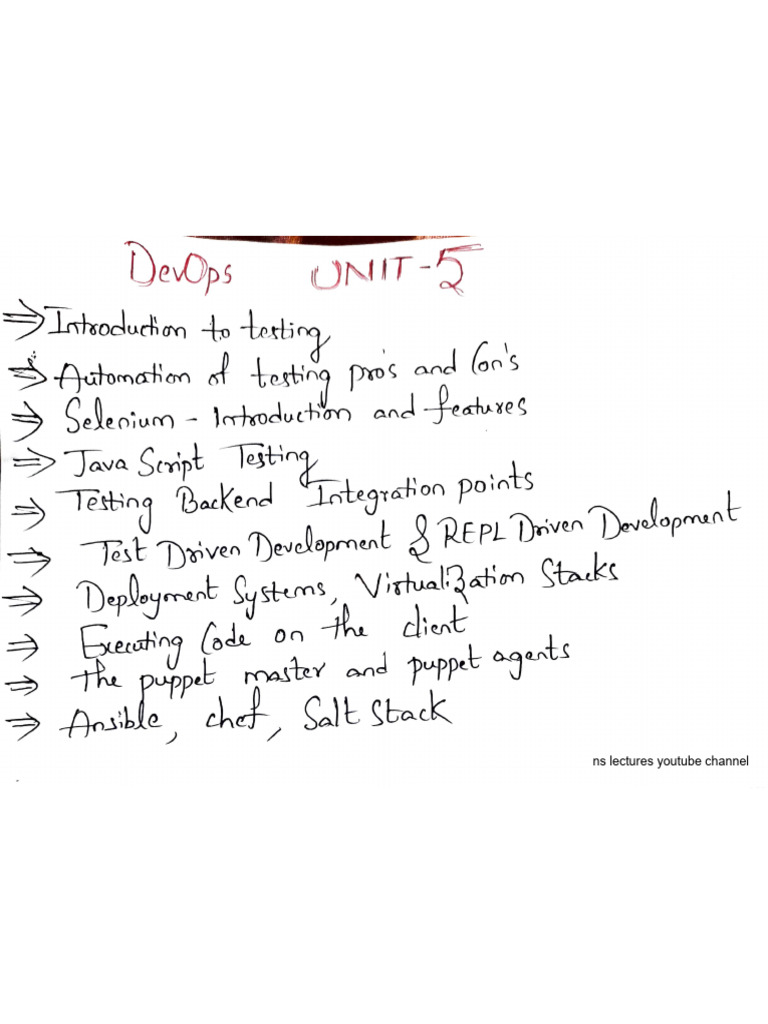 DevOps UNIT-5
⇒ Introduction to testing
⇒ Automation of testing pro's and Con's
⇒ Selenium - Introduction and features
⇒ Java Script Testing
⇒ Testing Backend Integration points
⇒ Test Driven Development & REPL Driven Development
⇒ Deployment Systems, Virtualization Stacks
⇒ Executing Code on the client
⇒ the puppet master and puppet agents
⇒ Ansible, chef, Salt Stack
ns lectures youtube channel